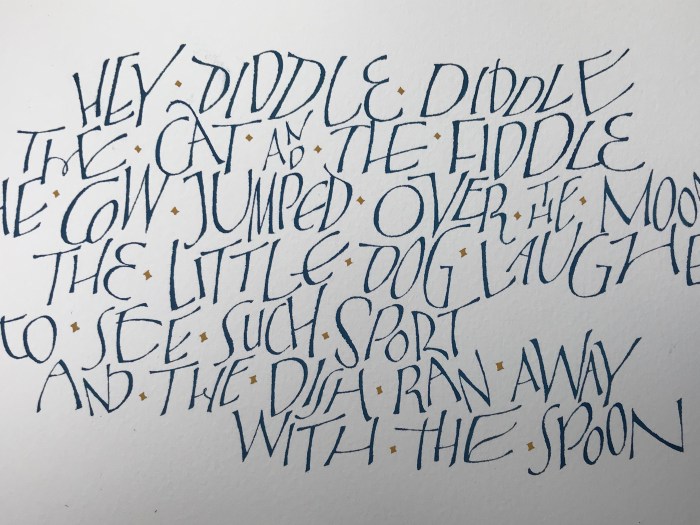 HEY · DIDDLE · DIDDLE
THE · CAT · AND · THE · FIDDLE
HE · COW · JUMPED · OVER · THE · MOON
THE · LITTLE · DOG · LAUGHE
TO · SEE · SUCH · SPORT
AND · THE · DISH · RAN · AWAY
WITH · THE · SPOON